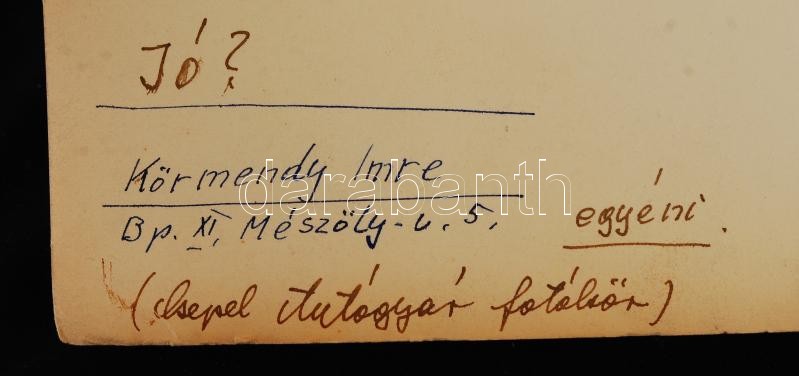 Jó?
Körmendy Imre
darabanth
Bp. XI. Mészöly-u. 5.
egyéni.
(Csepel Autógyár fotókör)